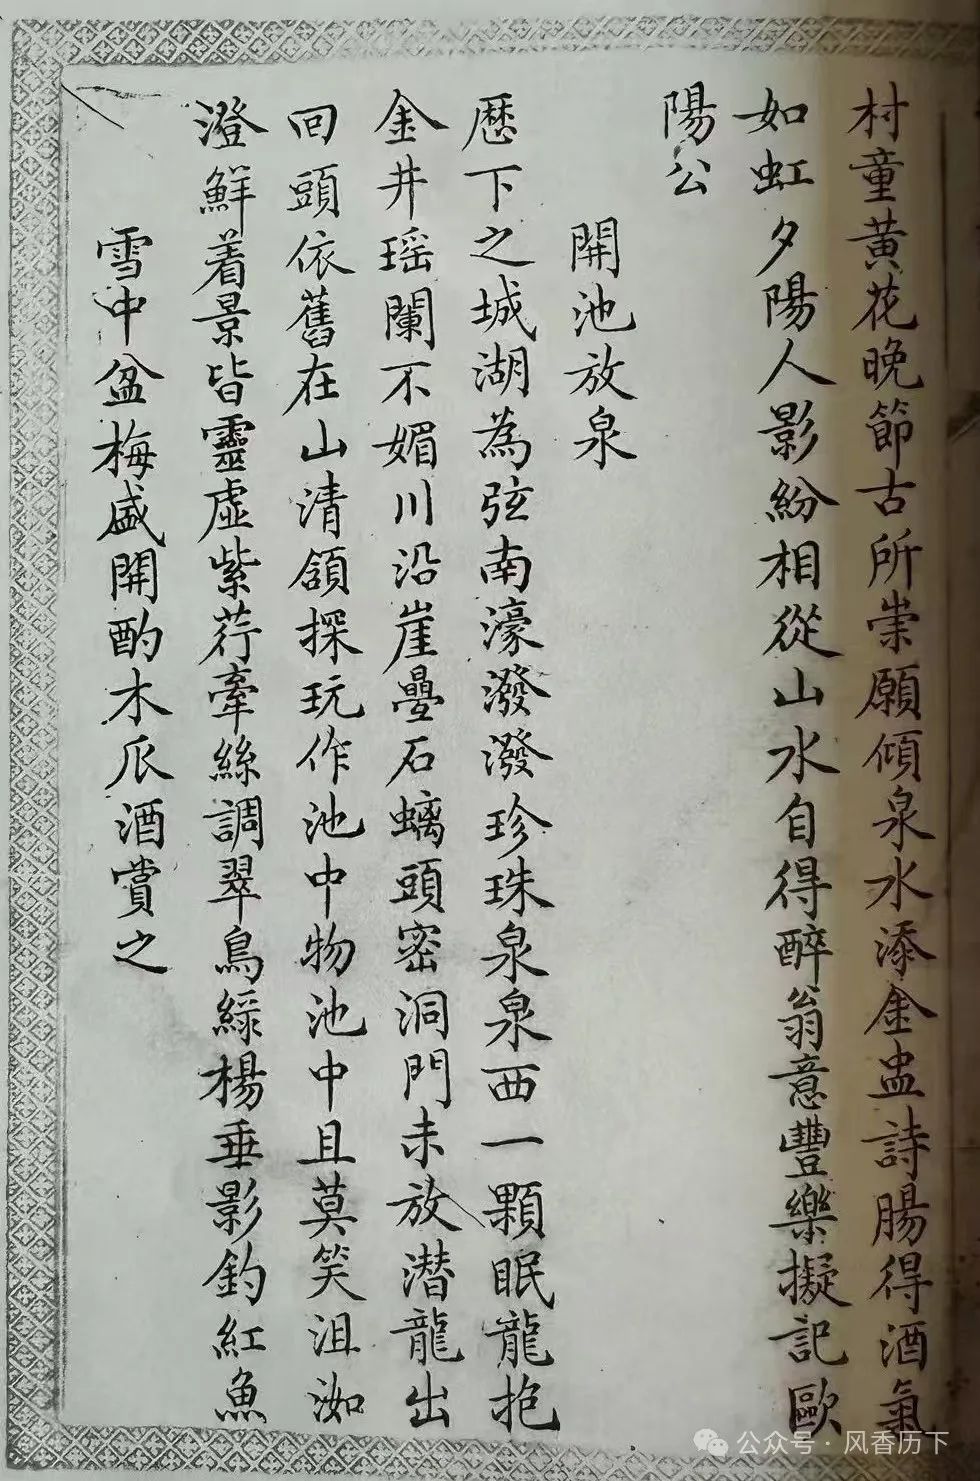 村童黄花晚節古所崇願傾泉水添金盅詩腸得酒氣
如虹夕陽人影紛相從山水自得醉翁意豐樂擬記歐
陽公
開池放泉
歷下之城湖為弦南濠潑潑珍珠泉泉西一顆眠龍抱
金井瑶闌不媚川沿崖疊石螭頭密洞門未放潜龍出
回頭依舊在山清頷探玩作池中物池中且莫笑沮洳
澄鮮着景皆靈虛紫荇牽絲調翠鳥綠楊垂影釣紅魚
雪中盆梅盛開酌木瓜酒賞之
公众号·风香历下